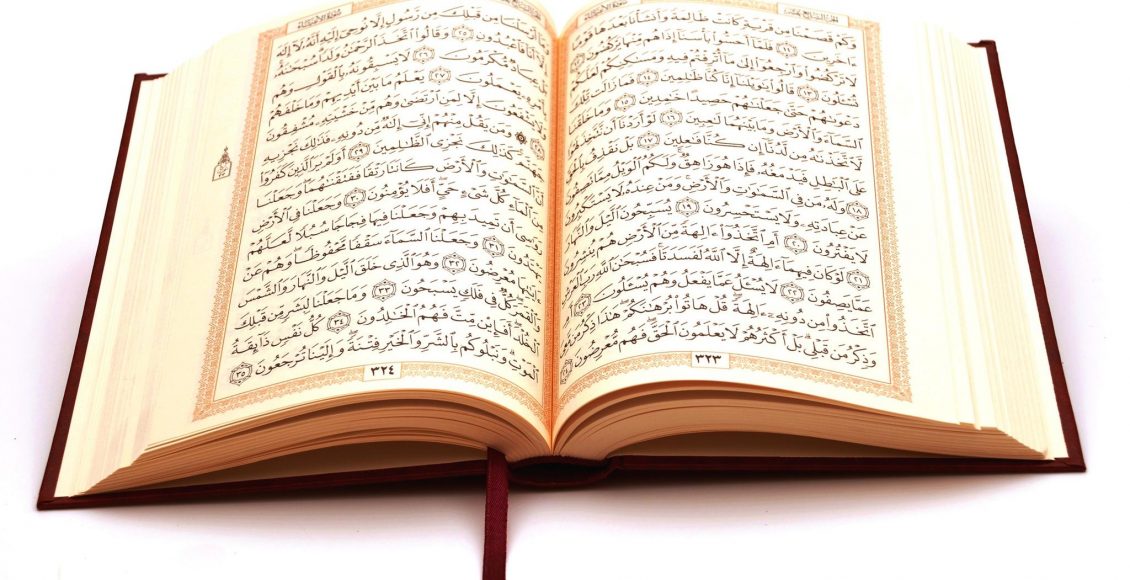 الجزء السابع عشر سورة الأنبياء
وَكَمْ قَصَمْنَا مِن قَرْيَةٍ كَانَتْ ظَالِمَةً وَأَنشَأْنَا بَعْدَهَا قَوْمًا
ءَاخَرِينَ ١١ فَلَمَّآ أَحَسُّوا۟ بَأْسَنَآ إِذَا هُم مِّنْهَا يَرْكُضُونَ ١٢
لَا تَرْكُضُوا۟ وَٱرْجِعُوٓا۟ إِلَىٰ مَآ أُتْرِفْتُمْ فِيهِ وَمَسَٰكِنِكُمْ لَعَلَّكُمْ
تُسْـَٔلُونَ ١٣ قَالُوا۟ يَٰوَيْلَنَآ إِنَّا كُنَّا ظَٰلِمِينَ ١٤ فَمَا زَالَت تِّلْكَ
دَعْوَىٰهُمْ حَتَّىٰ جَعَلْنَٰهُمْ حَصِيدًا خَٰمِدِينَ ١٥ وَمَا خَلَقْنَا
ٱلسَّمَآءَ وَٱلْأَرْضَ وَمَا بَيْنَهُمَا لَٰعِبِينَ ١٦ لَوْ أَرَدْنَآ أَن نَّتَّخِذَ لَهْوًا
لَّٱتَّخَذْنَٰهُ مِن لَّدُنَّآ إِن كُنَّا فَٰعِلِينَ ١٧ بَلْ نَقْذِفُ بِٱلْحَقِّ
عَلَى ٱلْبَٰطِلِ فَيَدْمَغُهُۥ فَإِذَا هُوَ زَاهِقٌ وَلَكُمُ ٱلْوَيْلُ مِمَّا تَصِفُونَ
١٨ وَلَهُۥ مَن فِى ٱلسَّمَٰوَٰتِ وَٱلْأَرْضِ وَمَنْ عِندَهُۥ لَا يَسْتَكْبِرُونَ
عَنْ عِبَادَتِهِۦ وَلَا يَسْتَحْسِرُونَ ١٩ يُسَبِّحُونَ ٱلَّيْلَ وَٱلنَّهَارَ
لَا يَفْتُرُونَ ٢٠ أَمِ ٱتَّخَذُوٓا۟ ءَالِهَةً مِّنَ ٱلْأَرْضِ هُمْ يُنشِرُونَ
٢١ لَوْ كَانَ فِيهِمَآ ءَالِهَةٌ إِلَّا ٱللَّهُ لَفَسَدَتَا فَسُبْحَٰنَ ٱللَّهِ رَبِّ ٱلْعَرْشِ
عَمَّا يَصِفُونَ ٢٢ لَا يُسْـَٔلُ عَمَّا يَفْعَلُ وَهُمْ يُسْـَٔلُونَ ٢٣ أَمِ
ٱتَّخَذُوا۟ مِن دُونِهِۦٓ ءَالِهَةً قُلْ هَاتُوا۟ بُرْهَٰنَكُمْ هَٰذَا ذِكْرُ مَن مَّعِىَ
وَذِكْرُ مَن قَبْلِى بَلْ أَكْثَرُهُمْ لَا يَعْلَمُونَ ٱلْحَقَّ فَهُم مُّعْرِضُونَ ٢٤
٣٢٣
سورة الأنبياء
وَمَآ أَرْسَلْنَا مِن قَبْلِكَ مِن رَّسُولٍ إِلَّا نُوحِىٓ إِلَيْهِ أَنَّهُۥ لَآ إِلَٰهَ
إِلَّآ أَنَا۠ فَٱعْبُدُونِ ٢٥ وَقَالُوا۟ ٱتَّخَذَ ٱلرَّحْمَٰنُ وَلَدًا سُبْحَٰنَهُۥ
بَلْ عِبَادٌ مُّكْرَمُونَ ٢٦ لَا يَسْبِقُونَهُۥ بِٱلْقَوْلِ وَهُم
بِأَمْرِهِۦ يَعْمَلُونَ ٢٧ يَعْلَمُ مَا بَيْنَ أَيْدِيهِمْ وَمَا خَلْفَهُمْ
وَلَا يَشْفَعُونَ إِلَّا لِمَنِ ٱرْتَضَىٰ وَهُم مِّنْ خَشْيَتِهِۦ مُشْفِقُونَ
٢٨ ۞ وَمَن يَقُلْ مِنْهُمْ إِنِّىٓ إِلَٰهٌ مِّن دُونِهِۦ فَذَٰلِكَ نَجْزِيهِ
جَهَنَّمَ كَذَٰلِكَ نَجْزِى ٱلظَّٰلِمِينَ ٢٩ أَوَلَمْ يَرَ ٱلَّذِينَ كَفَرُوٓا۟
أَنَّ ٱلسَّمَٰوَٰتِ وَٱلْأَرْضَ كَانَتَا رَتْقًا فَفَتَقْنَٰهُمَا وَجَعَلْنَا
مِنَ ٱلْمَآءِ كُلَّ شَىْءٍ حَىٍّ أَفَلَا يُؤْمِنُونَ ٣٠ وَجَعَلْنَا فِى ٱلْأَرْضِ
رَوَٰسِىَ أَن تَمِيدَ بِهِمْ وَجَعَلْنَا فِيهَا فِجَاجًا سُبُلًا لَّعَلَّهُمْ
يَهْتَدُونَ ٣١ وَجَعَلْنَا ٱلسَّمَآءَ سَقْفًا مَّحْفُوظًا وَهُمْ عَنْ
ءَايَٰتِهَا مُعْرِضُونَ ٣٢ وَهُوَ ٱلَّذِى خَلَقَ ٱلَّيْلَ وَٱلنَّهَارَ وَٱلشَّمْسَ
وَٱلْقَمَرَ كُلٌّ فِى فَلَكٍ يَسْبَحُونَ ٣٣ وَمَا جَعَلْنَا لِبَشَرٍ مِّن قَبْلِكَ
ٱلْخُلْدَ أَفَإِي۟ن مِّتَّ فَهُمُ ٱلْخَٰلِدُونَ ٣٤ كُلُّ نَفْسٍ ذَآئِقَةُ
ٱلْمَوْتِ وَنَبْلُوكُم بِٱلشَّرِّ وَٱلْخَيْرِ فِتْنَةً وَإِلَيْنَا تُرْجَعُونَ ٣٥
٣٢٤